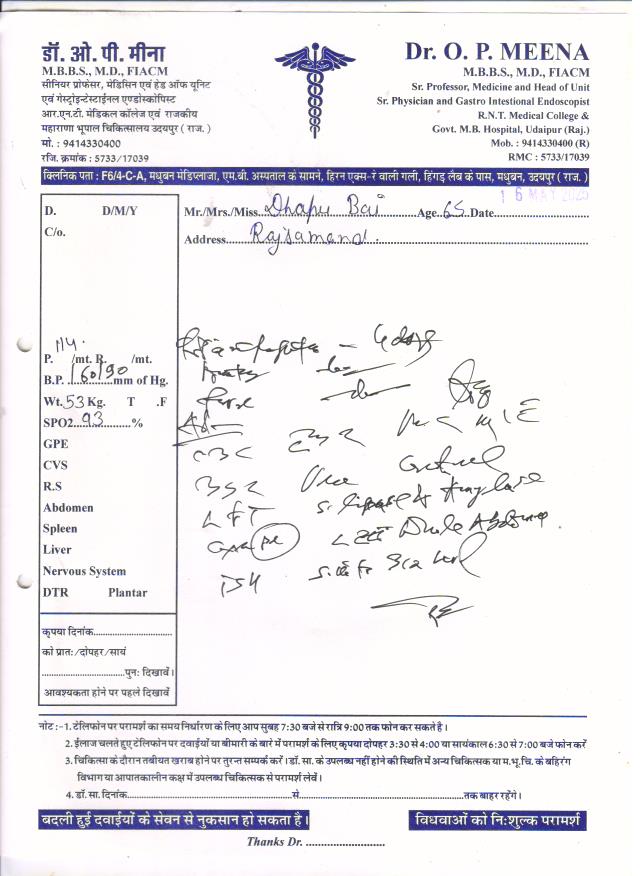 डॉ. ओ. पी. मीना
M.B.B.S., M.D., FIACM
सीनियर प्रोफेसर, मेडिसिन एवं हेड ऑफ यूनिट
एवं गेस्ट्रोइन्टेस्टाईनल एण्डोस्कोपिस्ट
आर.एन.टी. मेडिकल कॉलेज एवं राजकीय
महाराणा भूपाल चिकित्सालय उदयपुर ( राज. )
मो. : 9414330400
रजि. क्रमांक : 5733/17039
Dr. O. P. MEENA
M.B.B.S., M.D., FIACM
Sr. Professor, Medicine and Head of Unit
Sr. Physician and Gastro Intestional Endoscopist
R.N.T. Medical College &
Govt. M.B. Hospital, Udaipur (Raj.)
Mob. : 9414330400 (R)
RMC : 5733/17039
क्लिनिक पता : F6/4-C-A, मधुवन मेडिप्लाजा, एम.बी. अस्पताल के सामने, हिरन एक्स-रे वाली गली, हिंगड़ लैब के पास, मधुबन, उदयपुर ( राज. )
D. D/M/Y
C/o.
Mr./Mrs./Miss Dhapu Bai Age 65 Date 16 MAY 2025
Address Rajsamand
P. 114 /mt. R. /mt.
B.P. 160/90 mm of Hg.
Wt. 53 Kg. T .F
SPO2 93 %
GPE
CVS
R.S
Abdomen
Spleen
Liver
Nervous System
DTR Plantar
Adv
CBC ESR
LFT S. lipase & Amylase
Whole Abdomen
TSH
कृपया दिनांक
को प्रातः/दोपहर/सायं
पुनः दिखावें।
आवश्यकता होने पर पहले दिखावें
नोट :-1. टेलिफोन पर परामर्श का समय निर्धारण के लिए आप सुबह 7:30 बजे से रात्रि 9:00 तक फोन कर सकते है।
2. ईलाज चलते हुए टेलिफोन पर दवाईयों या बीमारी के बारे में परामर्श के लिए कृपया दोपहर 3:30 से 4:00 या सायंकाल 6:30 से 7:00 बजे फोन करें
3. चिकित्सा के दौरान तबीयत खराब होने पर तुरन्त सम्पर्क करें। डॉ. सा. के उपलब्ध नहीं होने की स्थिति में अन्य चिकित्सक या म.भू.चि. के बहिरंग
विभाग या आपातकालीन कक्ष में उपलब्ध चिकित्सक से परामर्श लेवें।
4. डॉ. सा. दिनांक से तक बाहर रहेंगे।
बदली हुई दवाईयों के सेवन से नुकसान हो सकता है।
विधवाओं को निःशुल्क परामर्श
Thanks Dr.